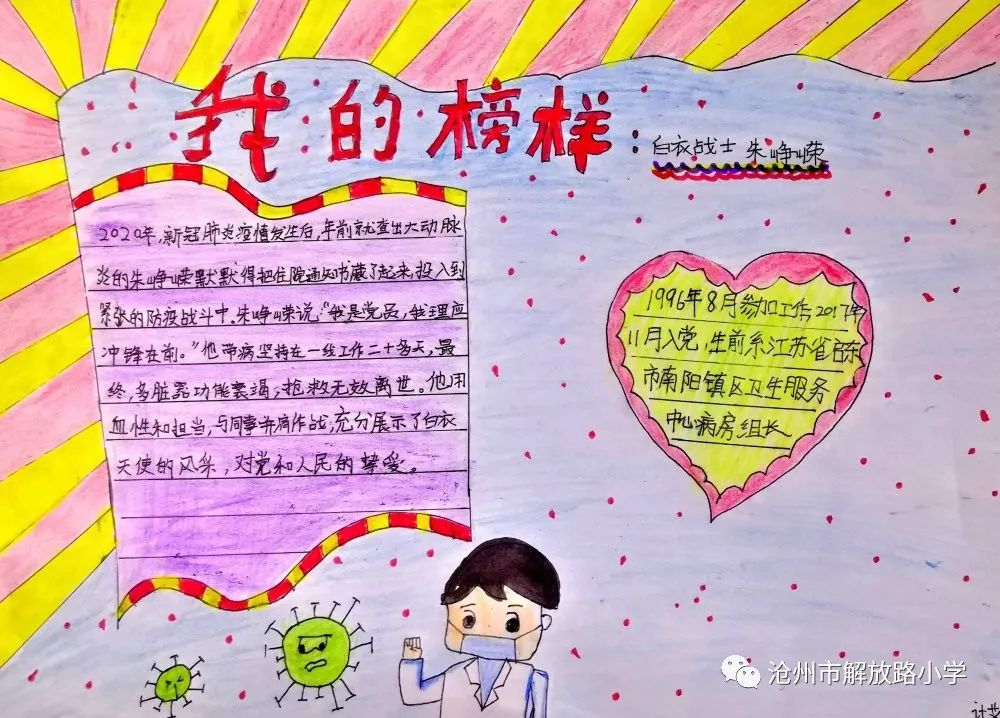 我的榜样：
白衣战士 朱峥嵘
2020年，新冠肺炎疫情发生后，年前就查出大动脉
炎的朱峥嵘默默得把住院通知书藏了起来，投入到
紧张的防疫战斗中。朱峥嵘说：“我是党员，我理应
冲锋在前。”他带病坚持在一线工作二十多天，最
终，多脏器功能衰竭，抢救无效离世。他用
血性和担当，与同事并肩作战，充分展示了白衣
天使的风采，对党和人民的挚爱。
1996年8月参加工作2017年
11月入党 生前系江苏省启东
市南阳镇区卫生服务
中心病房组长
沧州市解放路小学